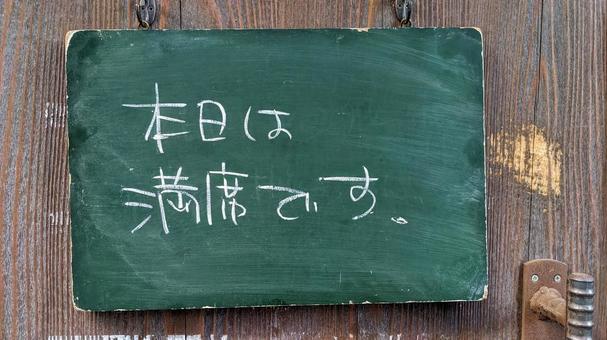 本日は
満席です。